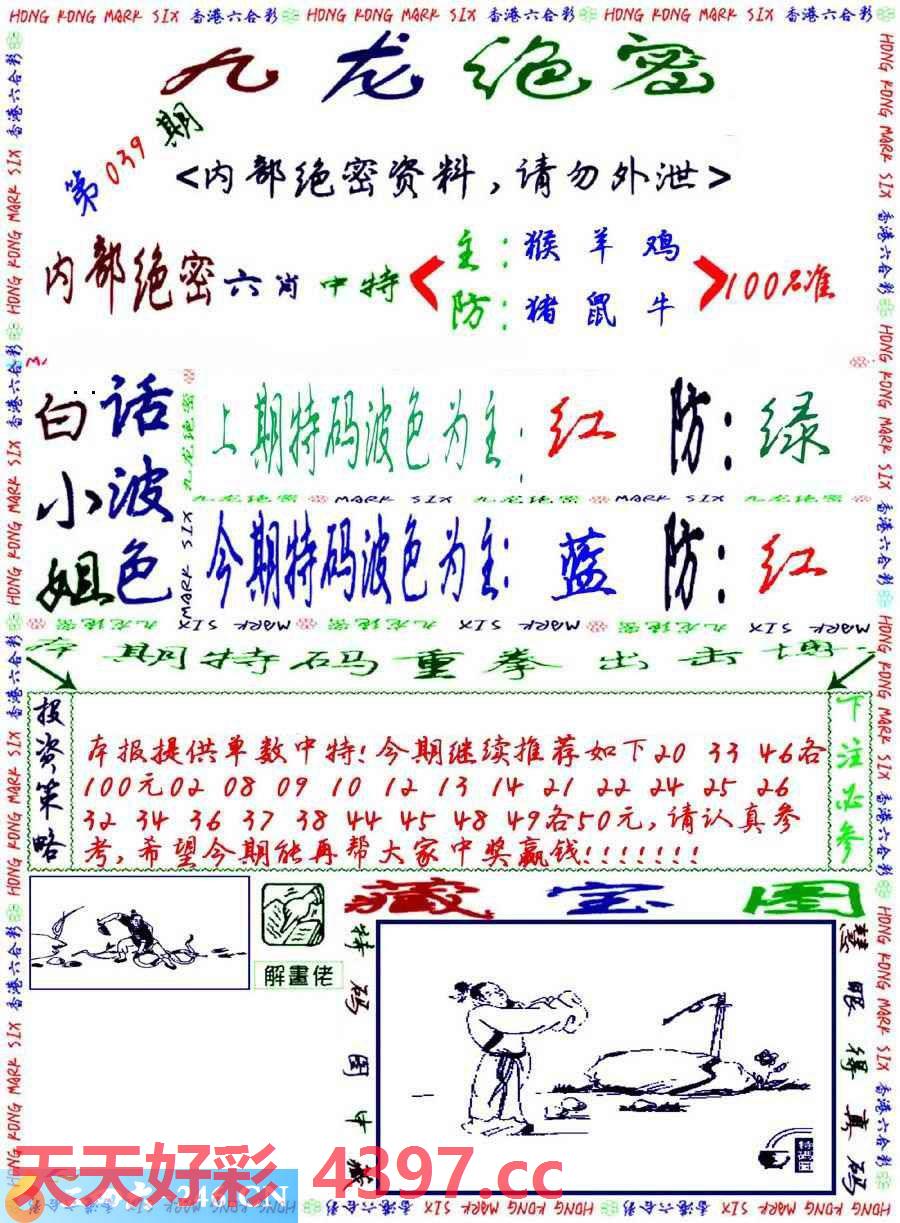 HONG KONG MARK SIX 香港六合彩 HONG KONG MARK SIX 香港六合彩 HONG KONG MARK SIX 香港六合彩
九龙绝密
第039期
<内部绝密资料,请勿外泄>
内部绝密六肖中特
主:猴羊鸡
防:猪鼠牛
100%准
白话小波姐色
上期特码波色为主:红 防:绿
九龙绝密 MARK SIX 九龙绝密 MARK SIX 九龙绝密
今期特码波色为主:蓝 防:红
本期特码重拳出击
投资策略
本报提供单数中特!今期继续推荐如下20 33 46各
100元02 08 09 10 12 13 14 21 22 24 25 26
32 34 36 37 38 44 45 48 49各50元,请认真参
考,希望今期能再帮大家中奖赢钱!!!!!!!
下注必参
藏宝图
解畫佬
特码图中藏
慧眼得真码
特码图
天天好彩 4397.cc